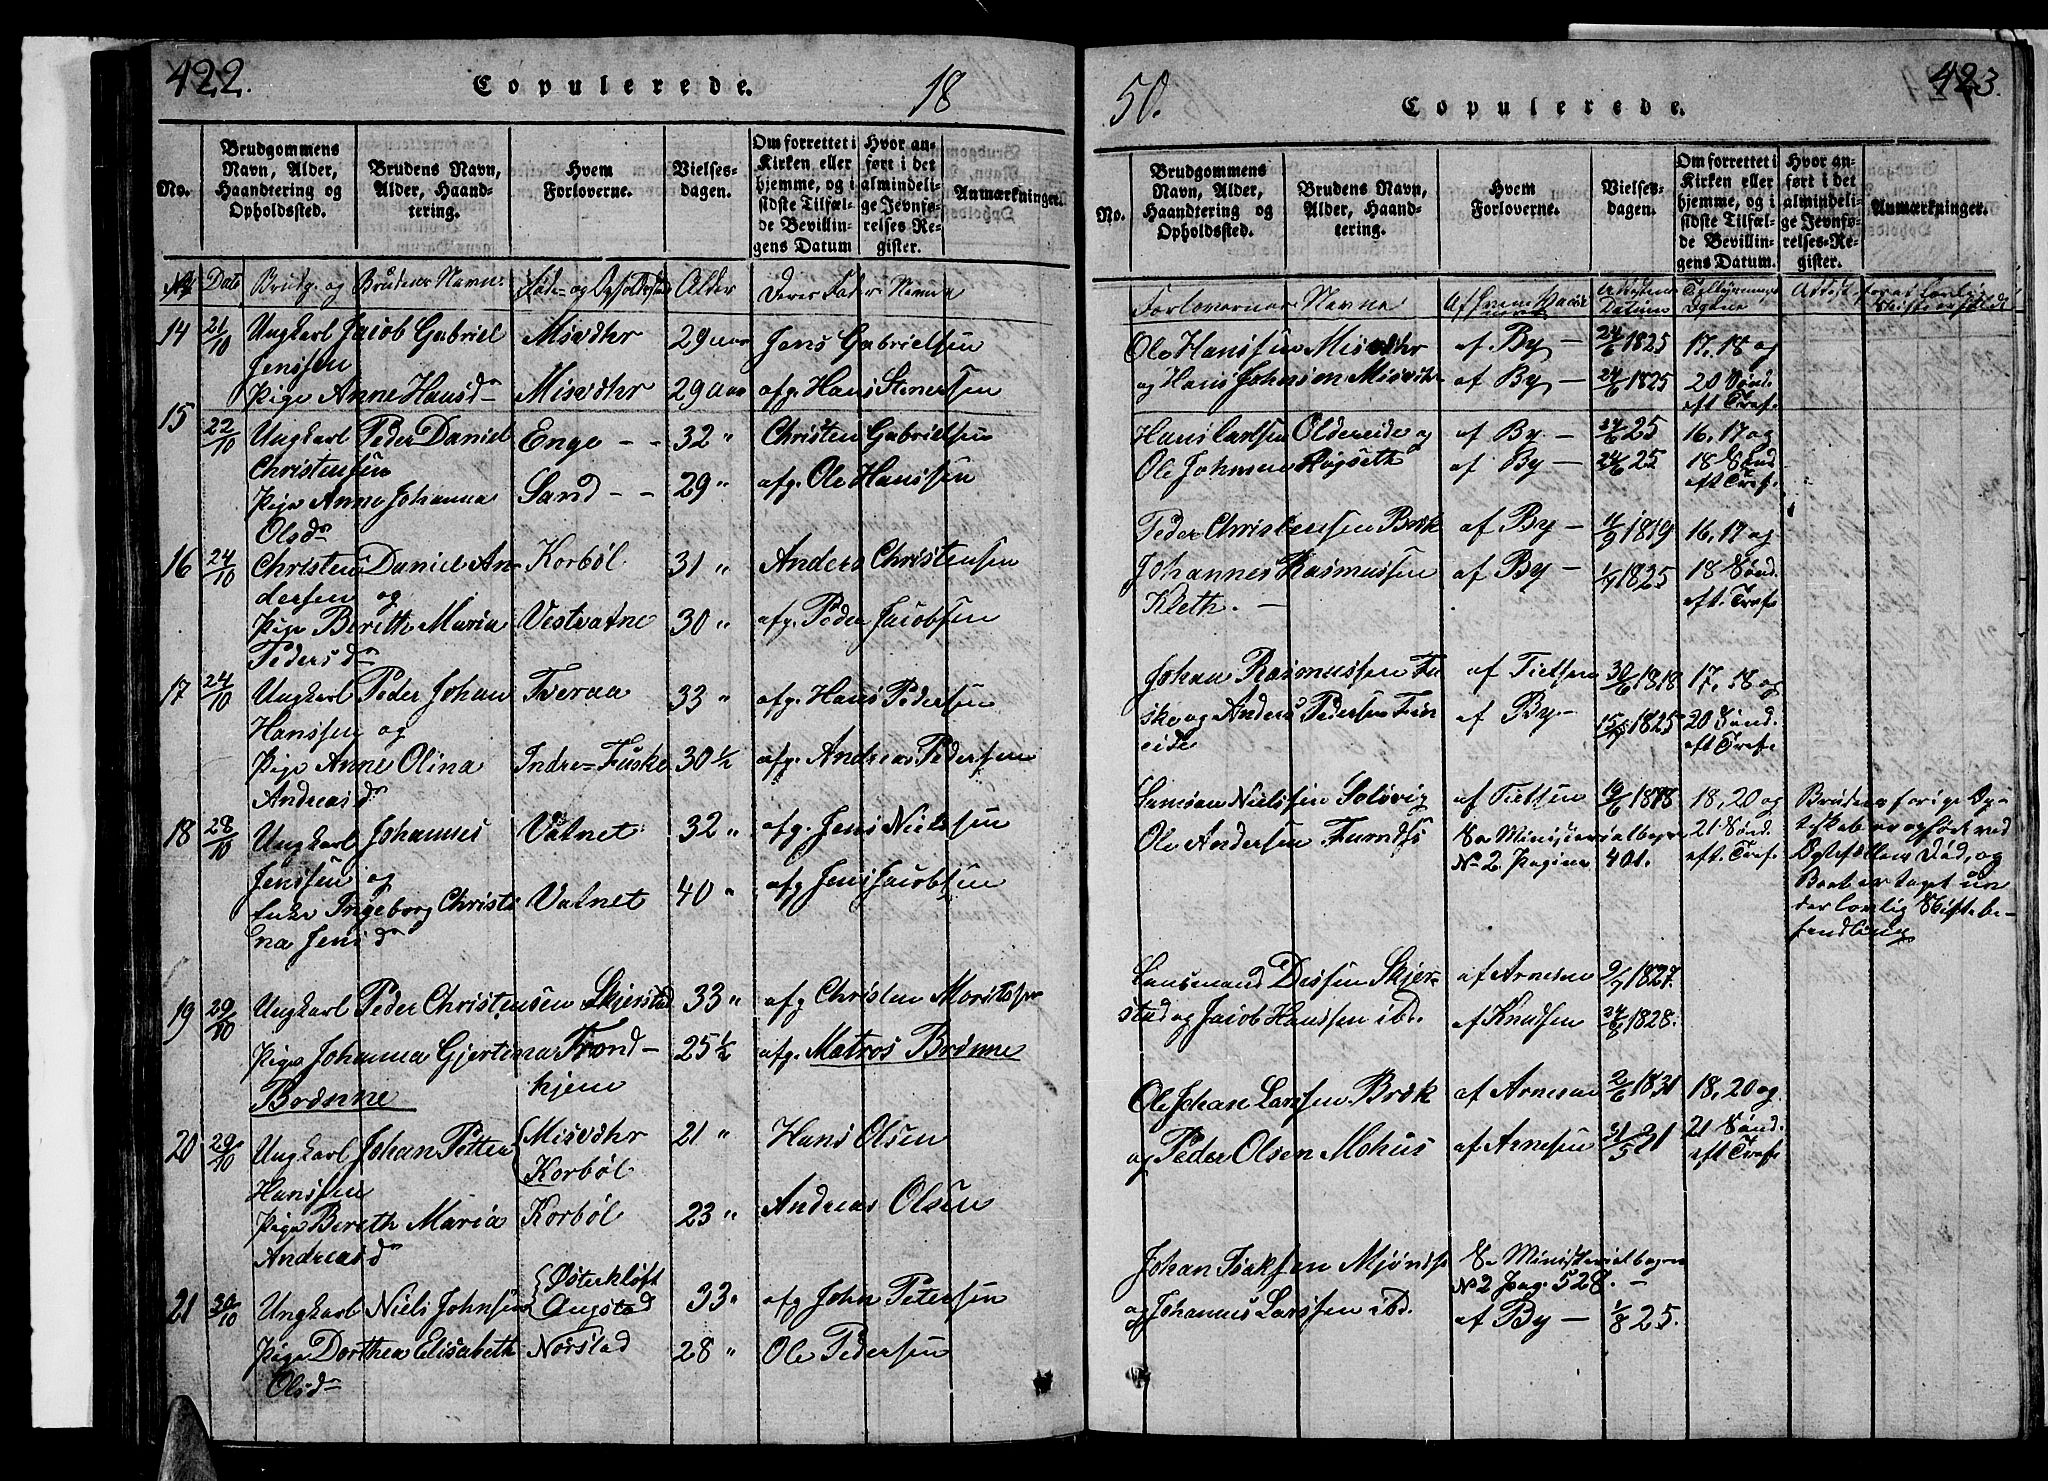 422.
Copulerede.
18
No.
Brudgommens Navn, Alder, Haandtering og Opholdssted.
Brudens Navn, Alder, Haandtering.
Hvem Forloverne.
Vielsesdagen.
Om forrettet i Kirken eller hjemme, og i sidste Tilfælde Bevillingens Datum
Hvor anført i det almindelige Jevnførelses Register.
Anmærkninger.
No Date Brudg. og Brudenes Navne Føde- og Opholdssted Alder Deres Fader Navne
14 21/10 Ungkarl Jacob Gabriel Misvdhr 29 aar Jens Gabrielsen
Jenssen
Pige Anne Hansd Misvdhr 29 aar afg. Hans Steensen
15 22/10 Ungkarl Peder Daniel Enge - - 32 " Christen Gabrielsen
Christensen Sand - - 29 " afg. Ole Hanssen
Pige Anne Johanna
Olsd
16 24/10 Christen Daniel An Korbøl 31 " Anders Christensen
dersen og
Pige Bereth Maria Vestvatne 30 " afg. Peder Jacobsen
Pedersd
17 24/10 Ungkarl Peder Johan Tveraa 33 " afg. Hans Pedersen
Hanssen og
Pige Anne Olina Indre=Fuske 30 1/2 afg. Andreas Pedersen
Andreasd
18 28/10 Ungkarl Johannes Valnet 32 " afg. Jens Nielssen
Jenssen og
Enke Ingeborg Christi Valnet 40 " afg Jens Jacobsen
na Jensd
19 29/10 Ungkarl Peder Christensen Skjerstad 33 " afg Christen Moritssen
Pige Johanna Gjertina Trond- 25 1/2 afg. Matros Brønne
Brønne hjem
20 29/10 Ungkarl Johan Petter Misvdhr 21 " Hans Olsen
Hanssen Korbøl
Pige Bereth Maria Korbøl 23 " Andreas Olsen
Andreasd
21 30/10 Ungkarl Niels Johnsen Østerkløft Augstad 33 " afg John Petersen
Pige Dorthea Elisabeth Norstad 28 " Ole Pedersen
Olsd
50.
Copulerede.
423.
No.
Brudgommens Navn, Alder, Haandtering og Opholdssted.
Brudens Navn, Alder, Haandtering.
Hvem Forloverne.
Vielsesdagen.
Om forrettet i Kirken eller hjemme, og i sidste Tilfælde Bevillingens Datum.
Hvor anført i det almindelige Jevnførelses-Register.
Anmærkninger.
Forlovernes Navne Attestens Datum
Ole Hanssen Misvdhr af By - 24/6 1825 17, 18 og
og Hans Johnsen Misvdhr af By - 24/6 1825 20 Sønd.
eft Tref.
Hans Carlsen Oldereide og af By - 24/6 25 16, 17 og
Ole Johnsen Røgseth af By - 24/6 25 18 Sønd
eft Tref.
Peder Christensen Bræk af By - 11/9 1819 16, 17 og
Johannes Rasmussen af By - 1/7 1825 18 Sønd.
Kleth. - eft. Tref.
Johan Rasmussen Fu af Tietsen 30/6 1818 17, 18 og
ske og Anders Pedersen Fin af By - 15/7 1825 20 Sønd.
eide eft Tref.
Samson Nielssen Soløvig af Tietsen 19/6 1818 18, 20 og
Ole Andersen Furnæs Se Ministerialbogen 21 Sønd.
No 2. Pagina 401. eft. Tref.
Brudens forige Eg-
teskab er ophørt ved
Egtefællens Død, og
Boet er taget un
der lovlig Skiftebe-
handling
Lensmand Dessen Skjer- af Arnesen 9/7 1827.
stad og Jacob Hanssen ibd. af Knudsen 24/8 1828.
Ole Johan Larssen Bræk af Arnesen 2/6 1831 18, 20 og
og Peder Olsen Mohus af Arnesen 31/5 31 21 Sønd.
eft Tref.
Johan Isaksen Mjønæs Se Ministerialbogen
No 2 Pag. 528. -
og Johannes Larssen ibd. af By - 1/8 25.